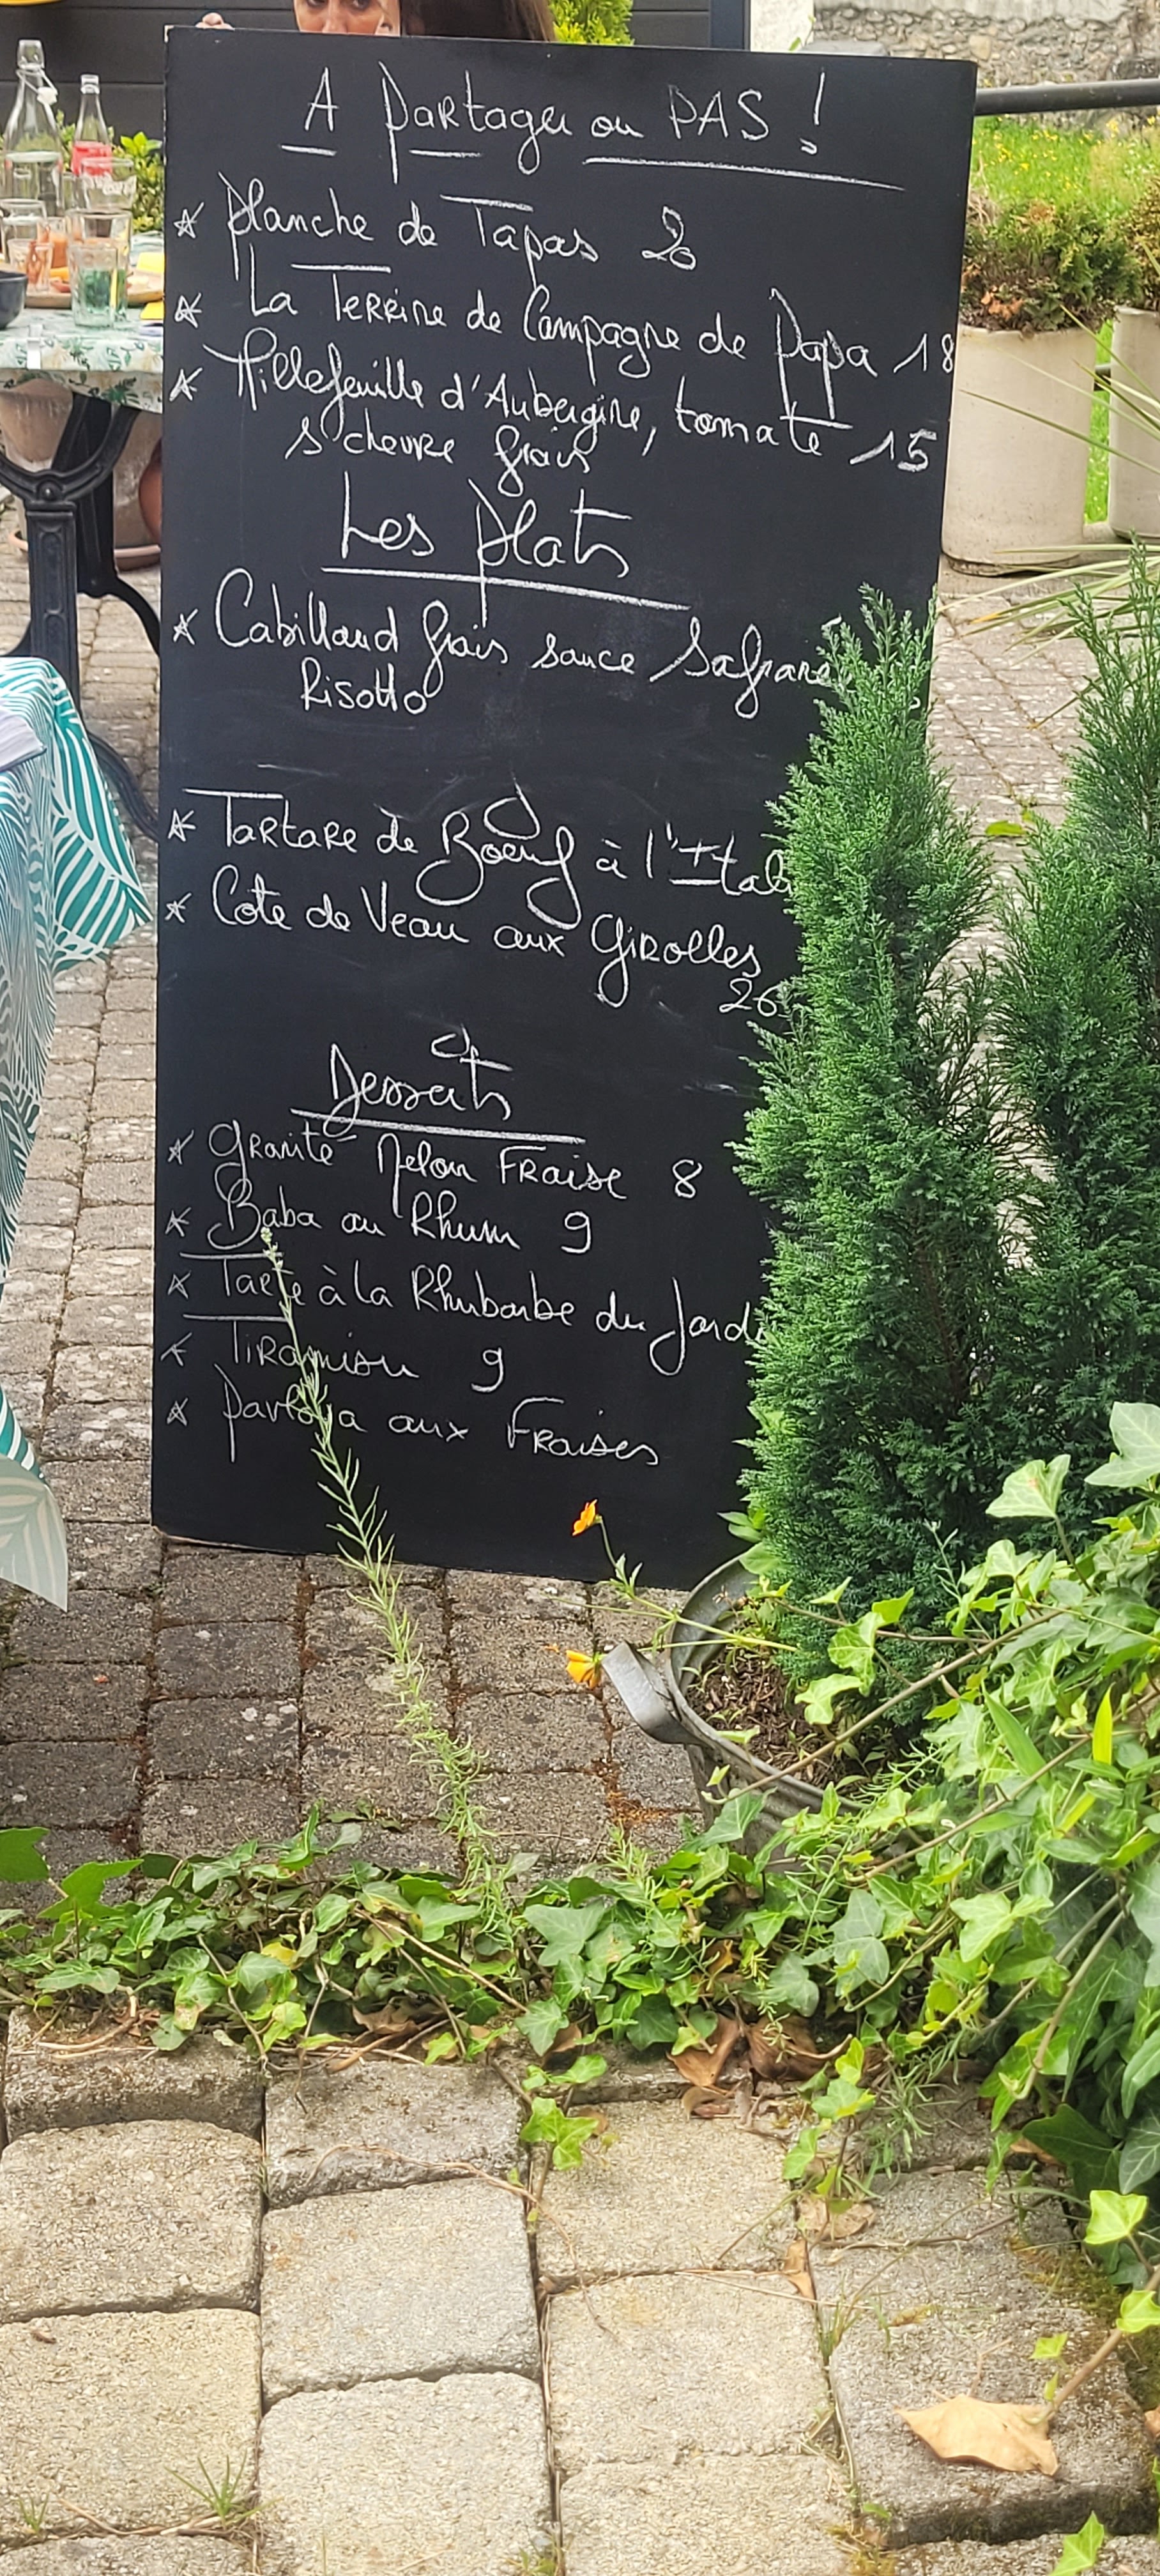 A Partager ou PAS !
* Planche de Tapas 20
* La Terrine de Campagne de Papa 18
* Millefeuille d'Aubergine, tomate 15
& chevre frais
Les plats
* Cabillaud frais sauce Safrané
Risotto
* Tartare de Boeuf à l'Itali
* Cote de Veau aux Girolles
26
Desserts
* Granité Melon Fraise 8
* Baba au Rhum 9
* Tarte à la Rhubarbe du Jardi
* Tiramisu 9
* Pavlova aux Fraises